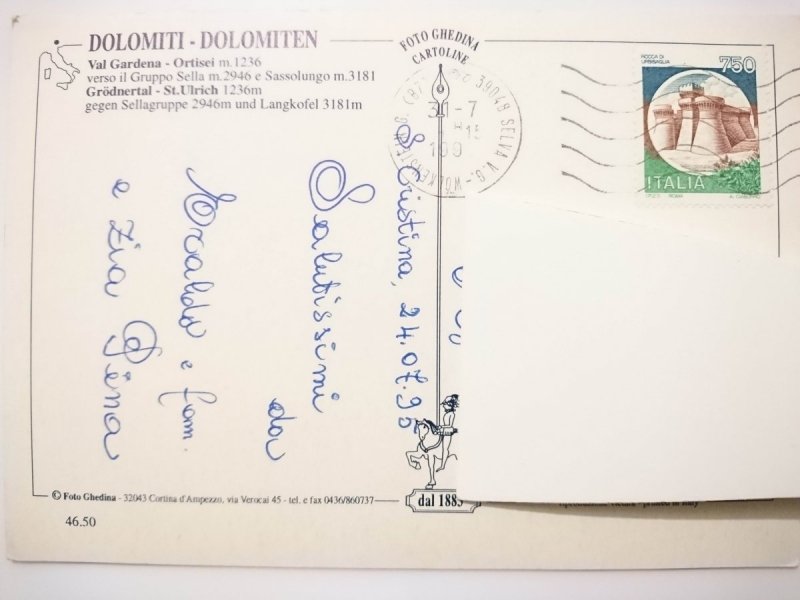 DOLOMITI - DOLOMITEN
Val Gardena - Ortisei m.1236
verso il Gruppo Sella m.2946 e Sassolungo m.3181
Grödnertal - St.Ulrich 1236m
gegen Sellagruppe 2946m und Langkofel 3181m
FOTO GHEDINA
CARTOLINE
39048 SELVA V.G. - WOLKENSTEIN
31-7
199
ROCCA DI
URBISAGLIA
750
ITALIA
I.P.Z.S. ROMA
S. Cristina, 24.07.95
Salutissimi
da
Eraldo e fam.
e zia Pina
© Foto Ghedina - 32043 Cortina d'Ampezzo, via Verocai 45 - tel. e fax 0436/860737
dal 1885
printed in Italy
46.50